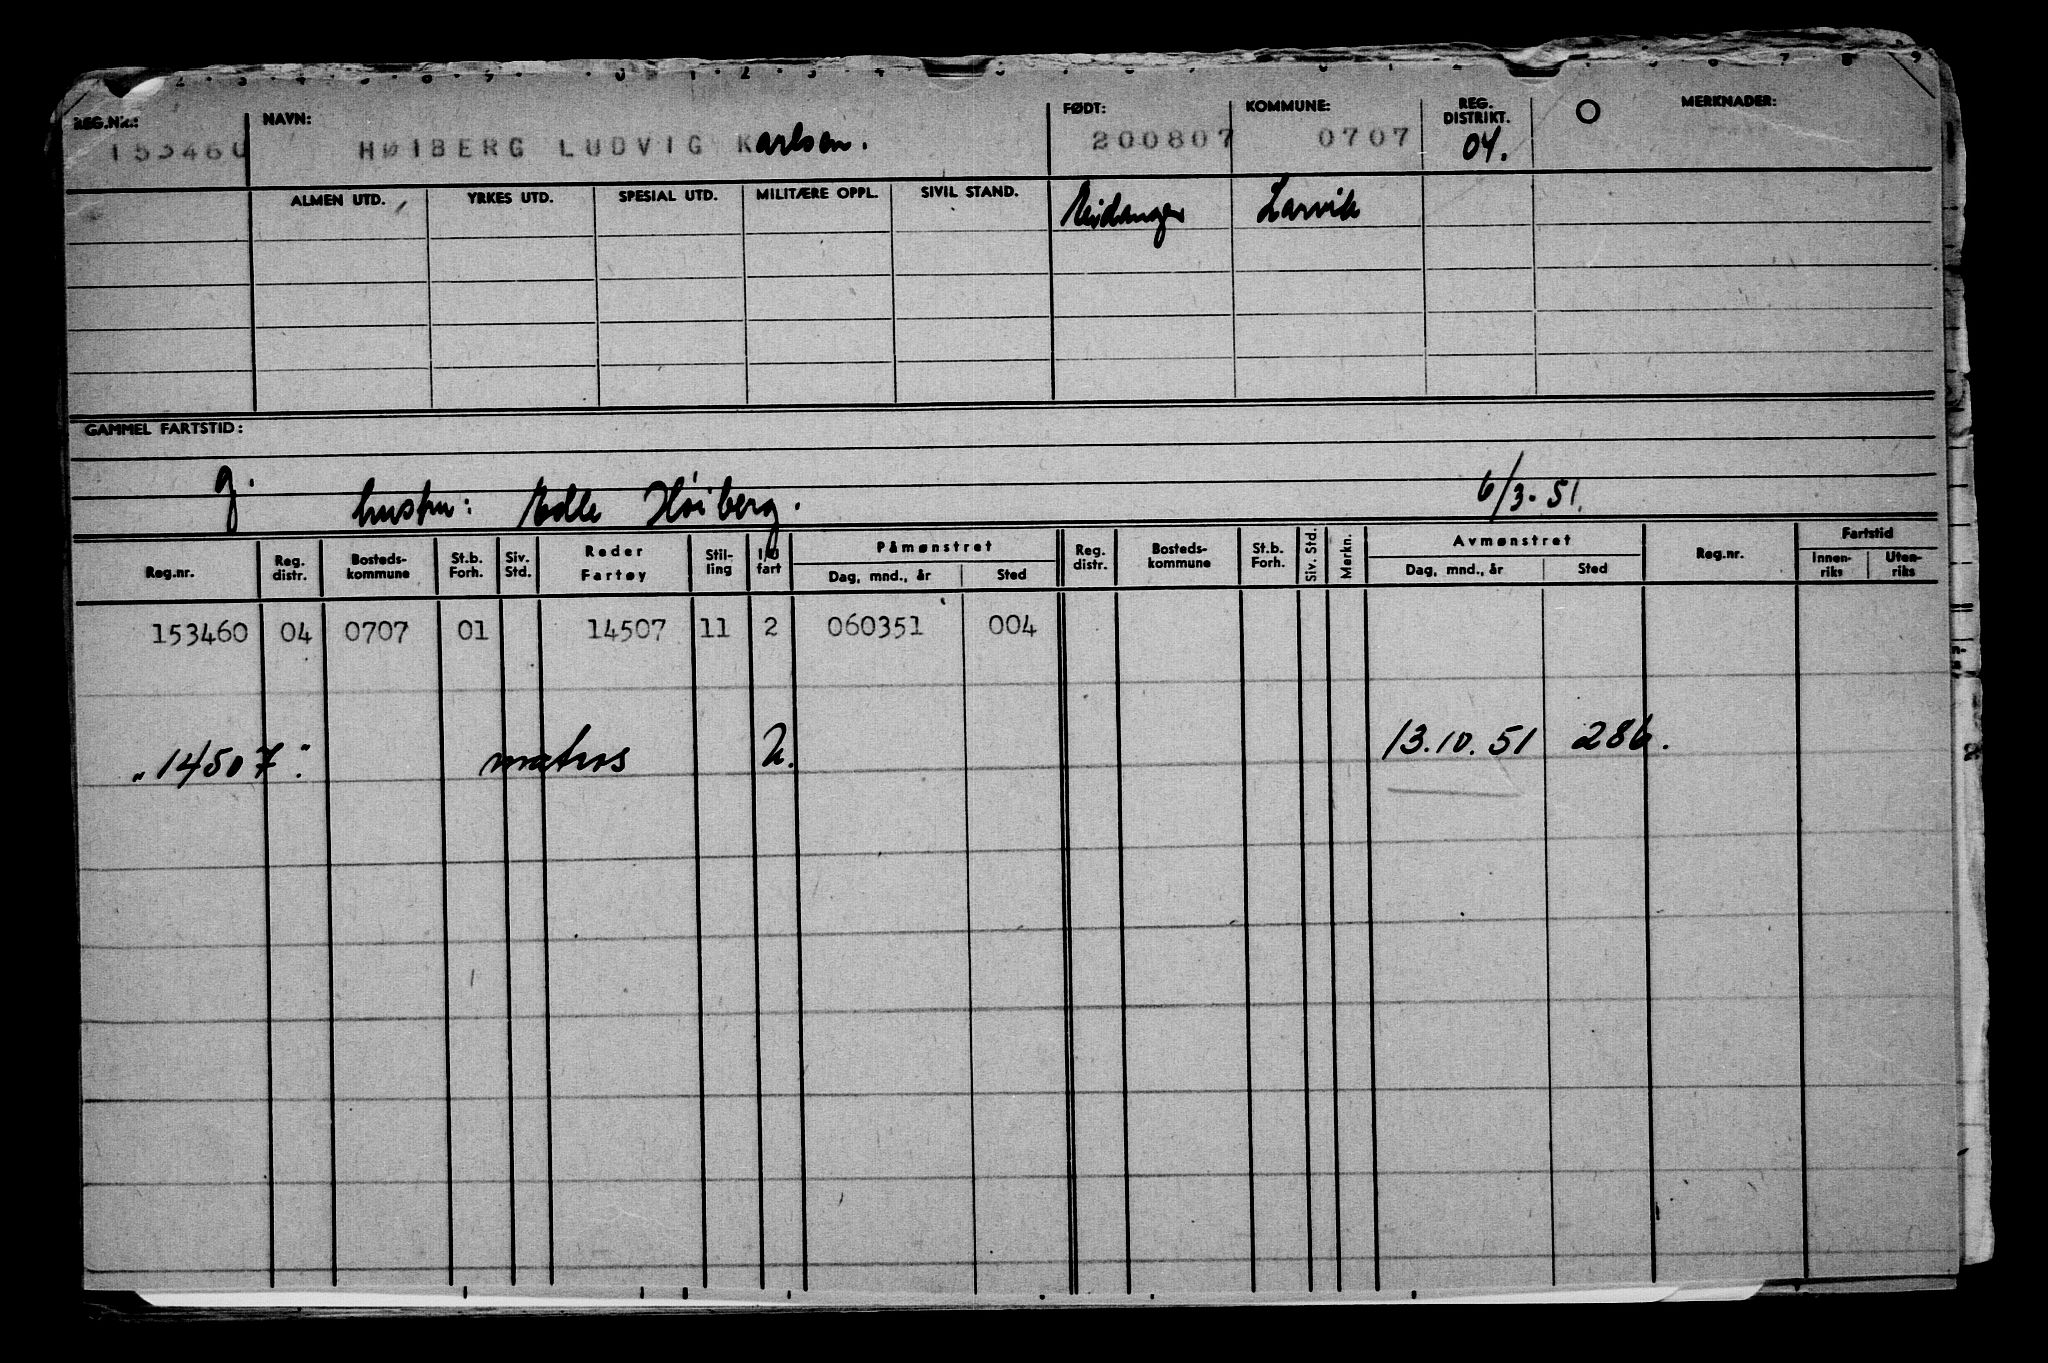 REG.NR.: NAVN: FØDT: KOMMUNE: REG. DISTRIKT. MERKNADER:
153460 HØIBERG LUDVIG Karlsen. 200807 0707 04.
ALMEN UTD. YRKES UTD. SPESIAL UTD. MILITÆRE OPPL. SIVIL STAND. Eidanger Larvik
GAMMEL FARTSTID:
g. hustru: Edle Høiberg. 6/3-51.
Reg.nr. Reg. distr. Bosteds-kommune St.b. Forh. Siv. Std. Reder Fartøy Stil-ling I/U fart Påmønstret Dag, mnd., år Sted Reg. distr. Bosteds-kommune St.b. Forh. Siv. Std. Merkn. Avmønstret Dag, mnd., år Sted Reg.nr. Fartstid Innen-riks Uten-riks
153460 04 0707 01 14507 11 2 060351 004
"14507." matros 2. 13.10.51 286.